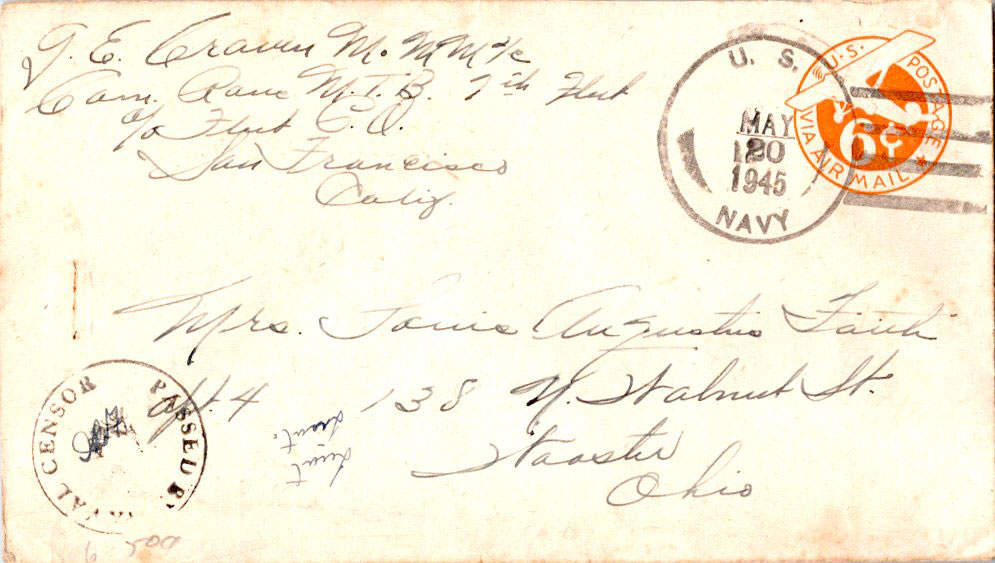 J. E. Craven Mo MM 1/c
Com. Ronc M.T.B. 7th Fleet
c/o Fleet P.O.
San Francisco
Calif.
U. S.
MAY
20
1945
NAVY
U.S. POSTAGE
6¢
VIA AIR MAIL
Mrs. Louis Augustus Faith
Apt. 4 138 N. Walnut St.
Wooster
Ohio
PASSED BY
NAVAL CENSOR